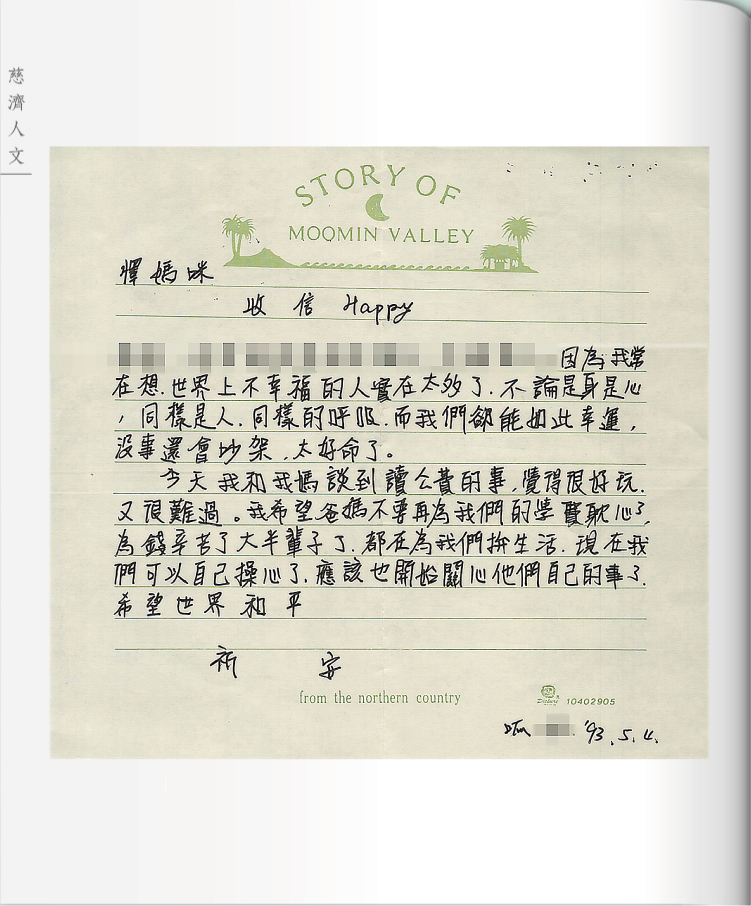 慈濟人文
STORY OF
MOOMIN VALLEY
懌媽咪
收信 Happy
因為我常
在想.世界上不幸福的人實在太多了.不論是身是心
，同樣是人.同樣的呼吸.而我們卻能如此幸運，
沒事還會吵架，太好命了。
今天我和我媽談到讀公費的事.覺得很好玩.
又很難過。我希望爸媽不要再為我們的學費耽心了.
為錢辛苦了大半輩子了.都在為我們拚生活.現在我
們可以自己操心了.應該也開始關心他們自己的事了.
希望世界和平
祈 安
from the northern country
10402905
'93.5.4.